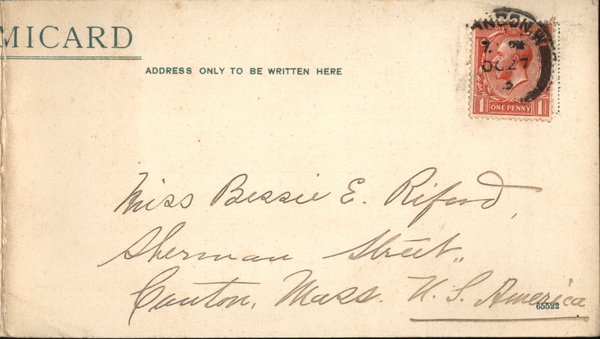 MICARD
ADDRESS ONLY TO BE WRITTEN HERE
OC 27
ONE PENNY
1 1
Miss Bessie E. Riford,
Sherman Street,
Canton, Mass. U. S. America
65532